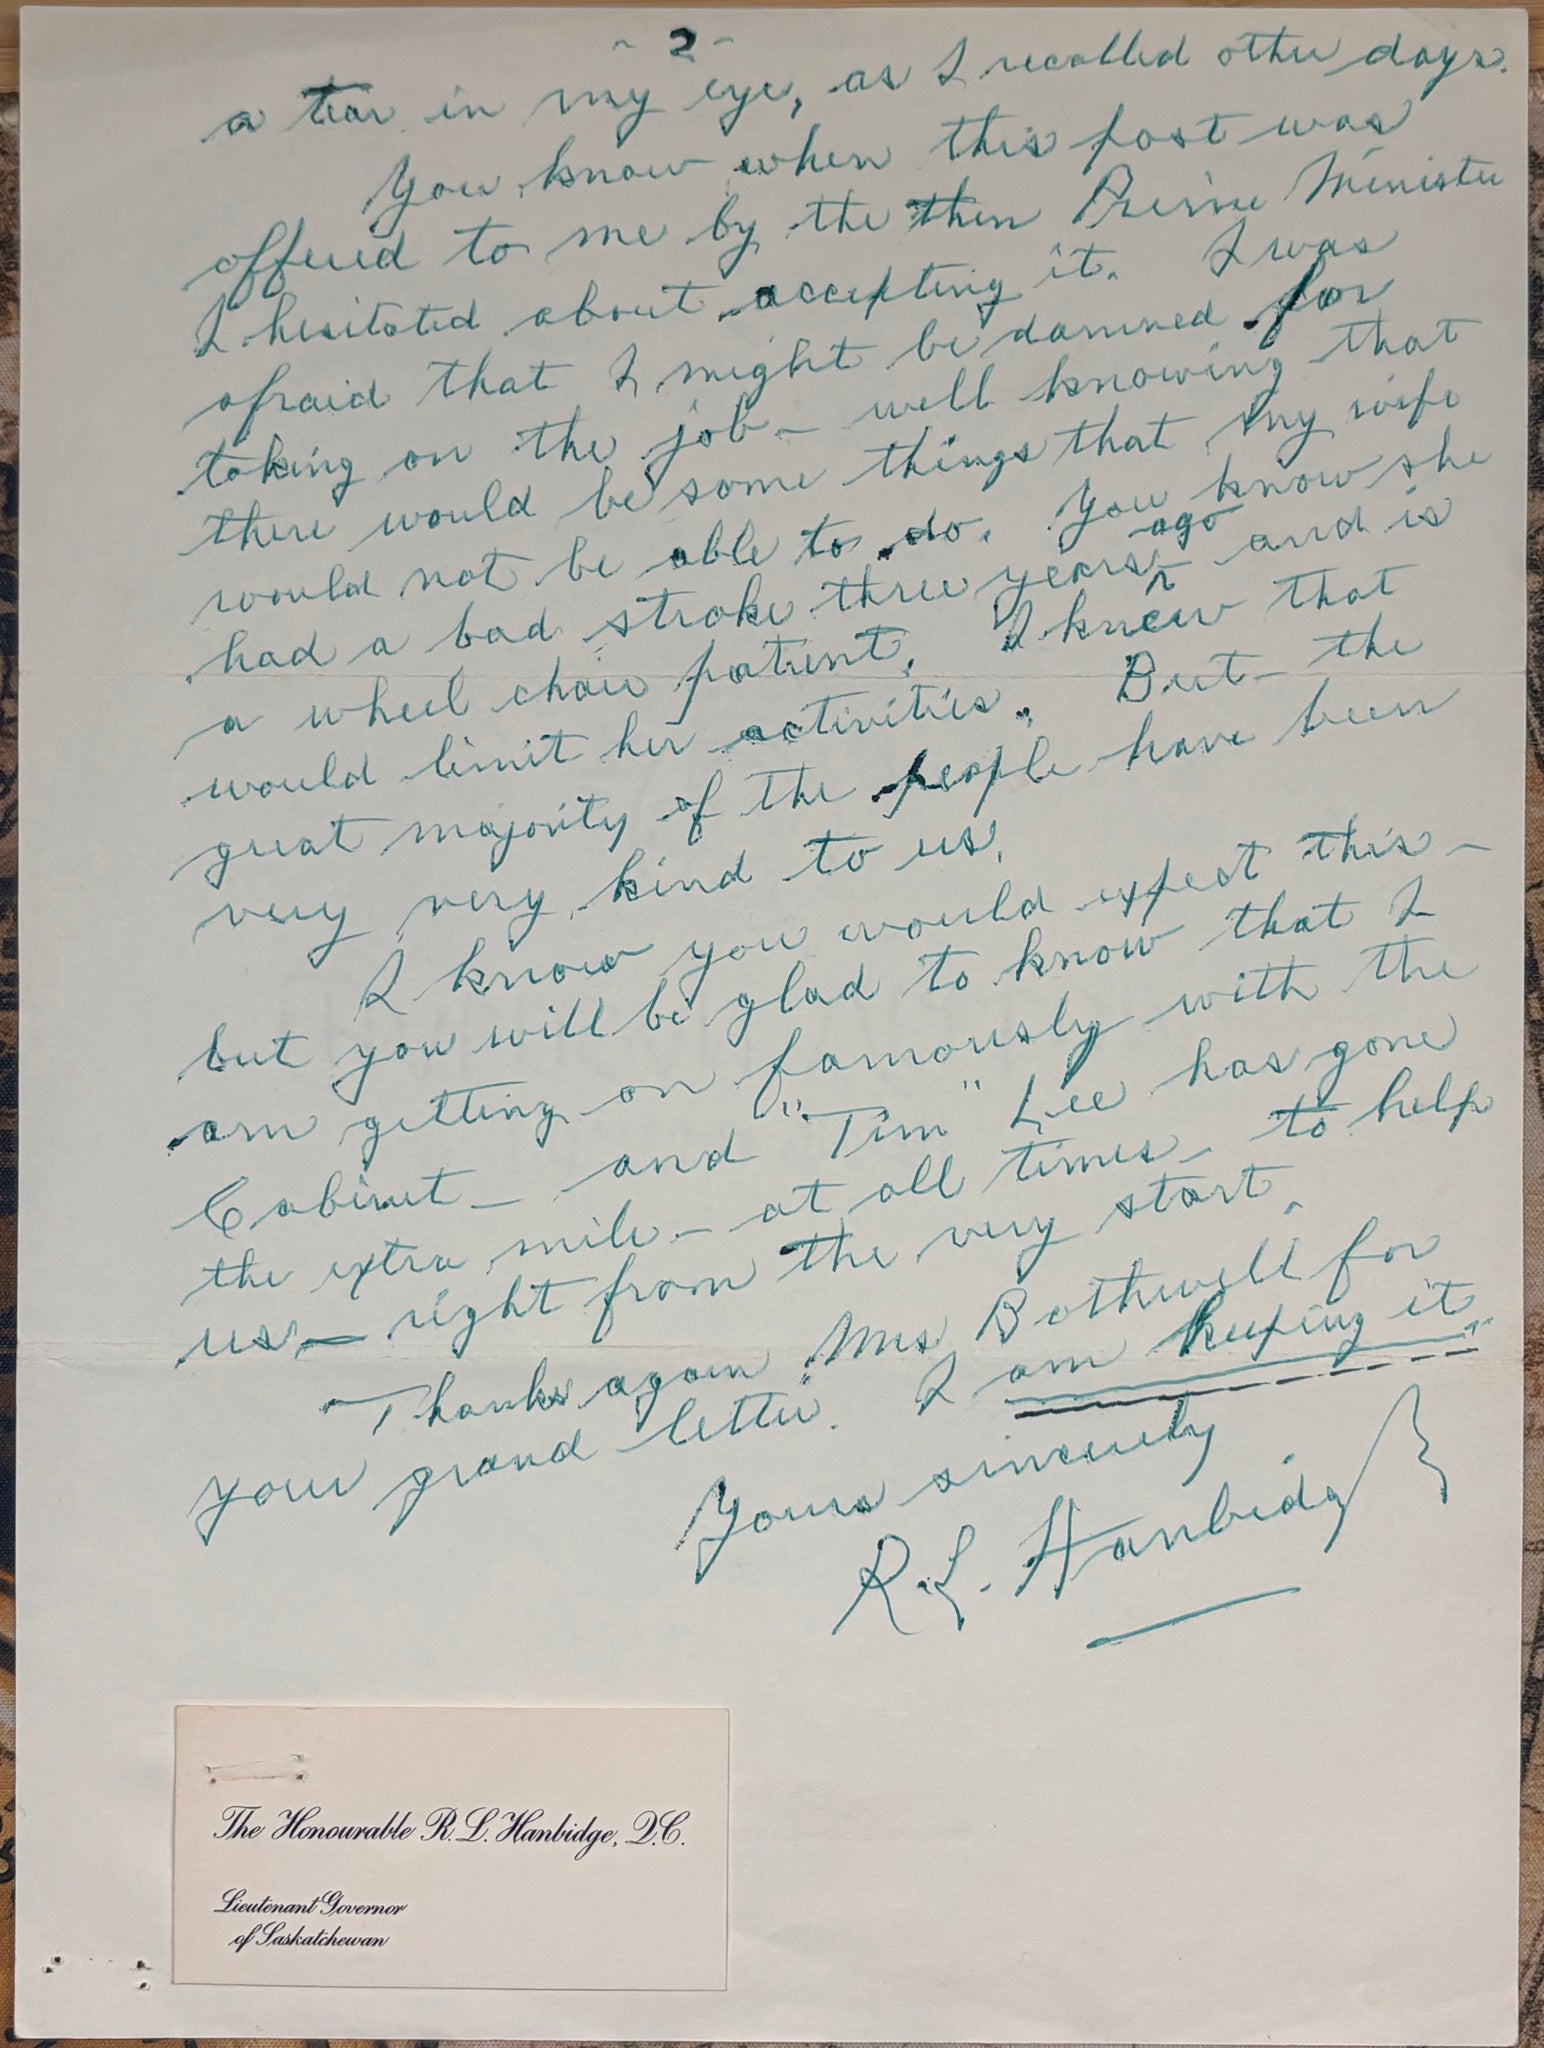 - 2 -
a tear in my eye, as I recalled other days.
You know when this post was
offered to me by the then Prime Minister
I hesitated about accepting it. I was
afraid that I might be damned for
taking on the job - well knowing that
there would be some things that my wife
would not be able to do. You know she
had a bad stroke three years ago and is
a wheel chair patient. I knew that
would limit her activities. But - the
great majority of the people have been
very very kind to us.
I know you would expect this -
but you will be glad to know that I
am getting on famously with the
Cabinet - and "Tim" Lee has gone
the extra mile - at all times - to help
us - right from the very start.
Thanks again Mrs Bothwell for
your grand letter. I am keeping it.
Yours sincerely
R. L. Hanbidge
The Honourable R. L. Hanbidge, Q.C.
Lieutenant Governor
of Saskatchewan